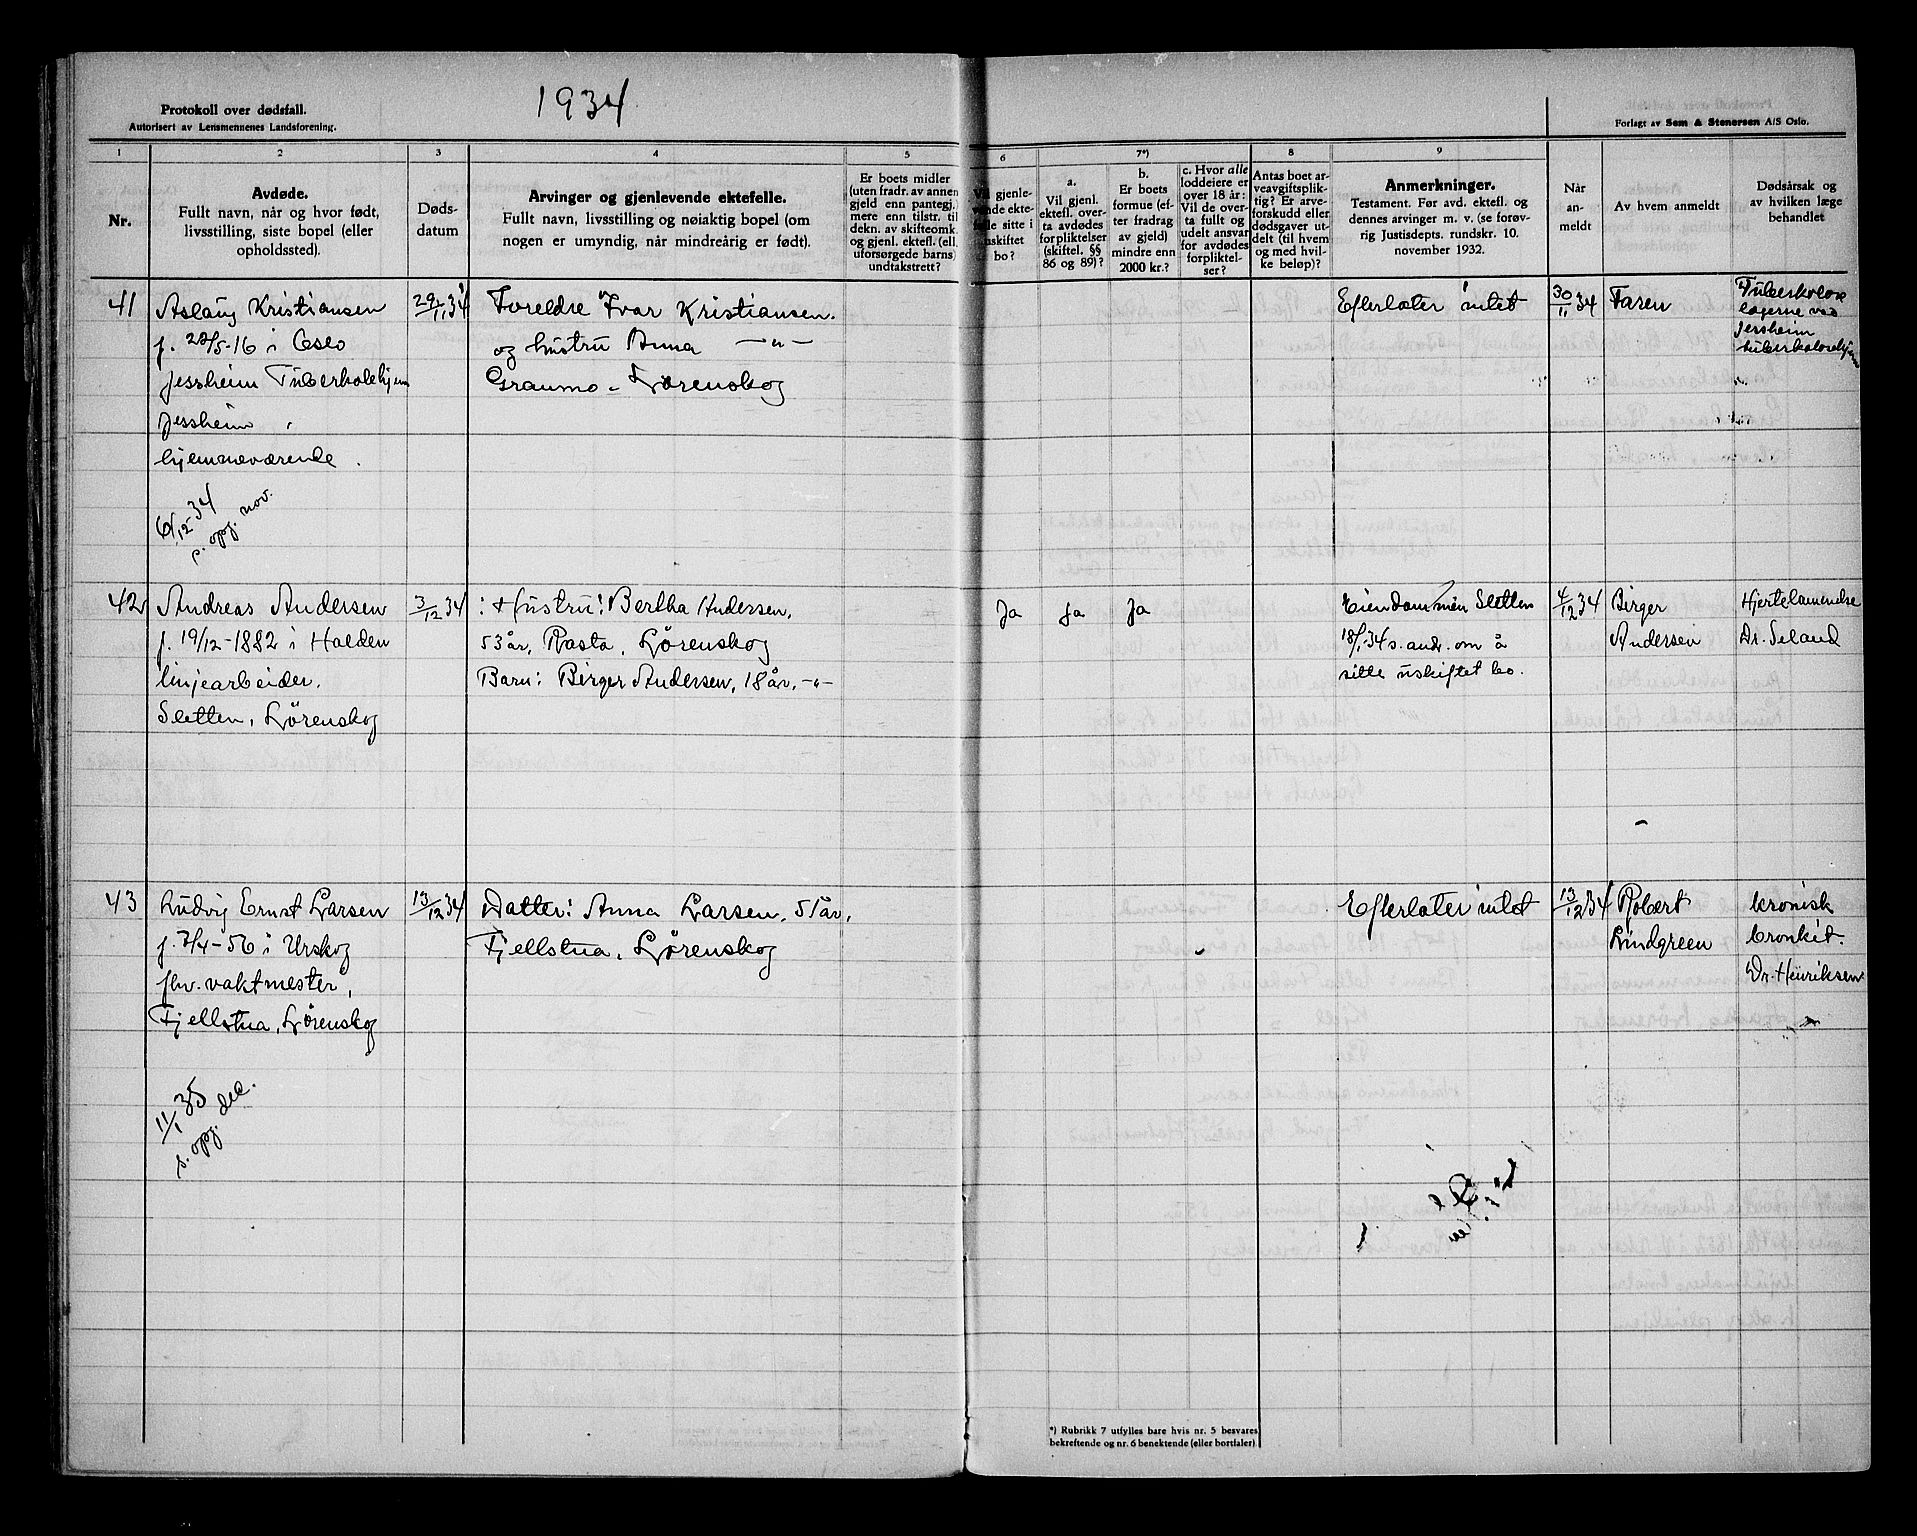 1934
Protokoll over dødsfall.
Autorisert av Lensmennenes Landsforening.
Forlagt av Sem & Stenersen A/S Oslo.
1 2 3 4 5 6 7*) 8 9
Nr.
Avdøde.
Fullt navn, når og hvor født,
livsstilling, siste bopel (eller
opholdssted).
Døds-
datum
Arvinger og gjenlevende ektefelle.
Fullt navn, livsstilling og nøiaktig bopel (om
nogen er umyndig, når mindreårig er født).
Er boets midler
(uten fradr. av annen
gjeld enn pantegj.)
mere enn tilstr. til
dekn. av skifteomk.
og gjenl. ektef. (ell.
uforsørgede barns)
undtakstrett?
Vil gjenle-
vende ekte-
felle sitte i
uskiftet
bo?
a.
Vil gjenl.
ektefl. over-
ta avdødes
forpliktelser
(skiftel. §§
86 og 89)?
b.
Er boets
formue (ef-
ter fradrag
av gjeld)
mindre enn
2000 kr.?
c. Hvor alle
loddeiere er
over 18 år:
Vil de over-
ta fullt og
udelt ansvar
for avdødes
forpliktel-
ser?
Antas boet ar-
veavgiftsplik-
tig? Er arve-
forskudd eller
dødsgaver ut-
delt (til hvem
og med hvil-
ke beløp)?
Anmerkninger.
Testament. Før avd. ektefl. og
dennes arvinger m. v. (se forøv-
rig Justisdepts. rundskr. 10.
november 1932.
Når
an-
meldt
Av hvem anmeldt
Dødsårsak og
av hvilken læge
behandlet
41
Aslaug Kristiansen
f. 22/5-16 i Oslo
Jessheim Tuberkulehjem
Jessheim
hjemmeværende.
6/12-34
s. opg. nov.
29/11 34
Foreldre Ivar Kristiansen.
og hustru Anna —"—
Graumo - Lørenskog
Efterlater intet
30/11 34
Faren
Tuberkulose
lægerne ved
Jessheim
tuberkulosehjem
42
Andreas Andersen
f. 19/12-1882 i Halden
linjearbeider.
Sletten, Lørenskog
3/12 34
: Hustru: Bertha Andersen,
53 år, Rasta, Lørenskog
Barn: Birger Andersen, 18 år, -"-
Ja Ja Ja
Eiendommen Sletten
18/1 34 s. andr. om å
sitte uskiftet bo.
4/12 34
Birger
Andersen
Hjertelammelse
Dr. Seland
43
Ludvig Ernst Larsen
f. 7/4-56 i Urskog
fhv. vaktmester,
Fjellstua, Lørenskog
11/1 35
s. opg. des.
13/12 34
Datter: Anna Larsen, 51 år,
Fjellstua, Lørenskog
Efterlater intet
13/12 34
Robert
Lindgreen
kronisk
bronkit.
Dr. Henriksen
*) Rubrikk 7 utfylles bare hvis nr. 5 besvares
bekreftende og nr. 6 benektende (eller bortfaler)